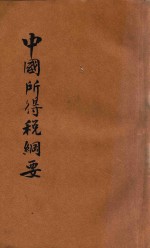 中國所得稅綱要